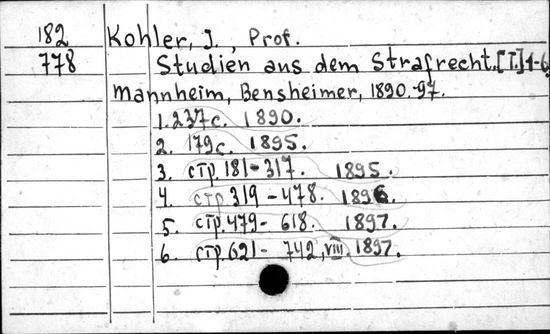 182 Kohler, J., Prof.
778 Studien aus dem Strafrecht. [I.] 1-6
Mannheim, Bensheimer, 1890-97.
1. 237 с. 1890.
2. 179 с. 1895.
3. стр. 181-317. 1895.
4. стр. 319-478. 1896.
5. стр. 479-618. 1897.
6. стр. 621-742, VIII. 1897.